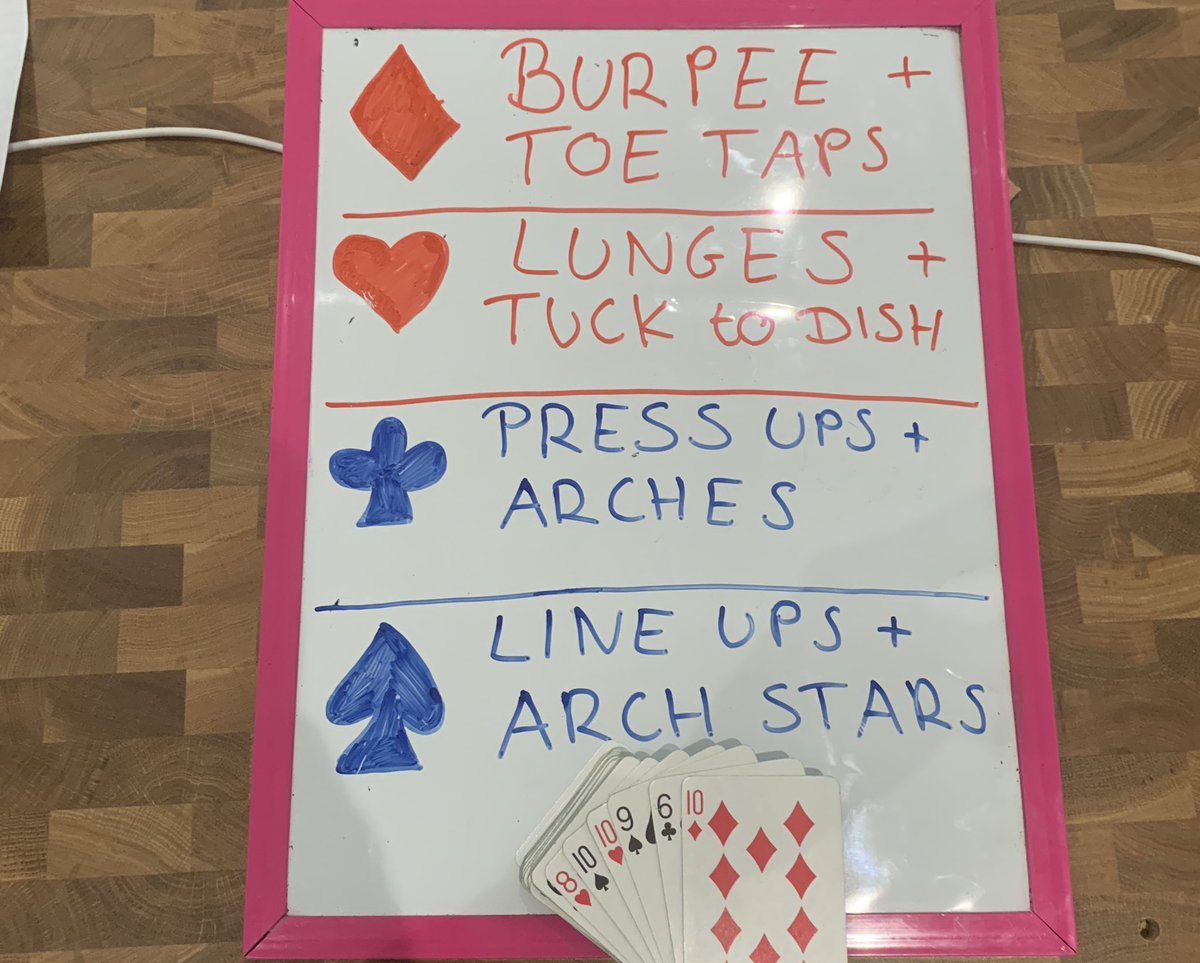 BURPEE +
TOE TAPS
LUNGES +
TUCK to DISH
PRESS UPS +
ARCHES
LINE UPS +
ARCH STARS
8
10
10
9
6
10